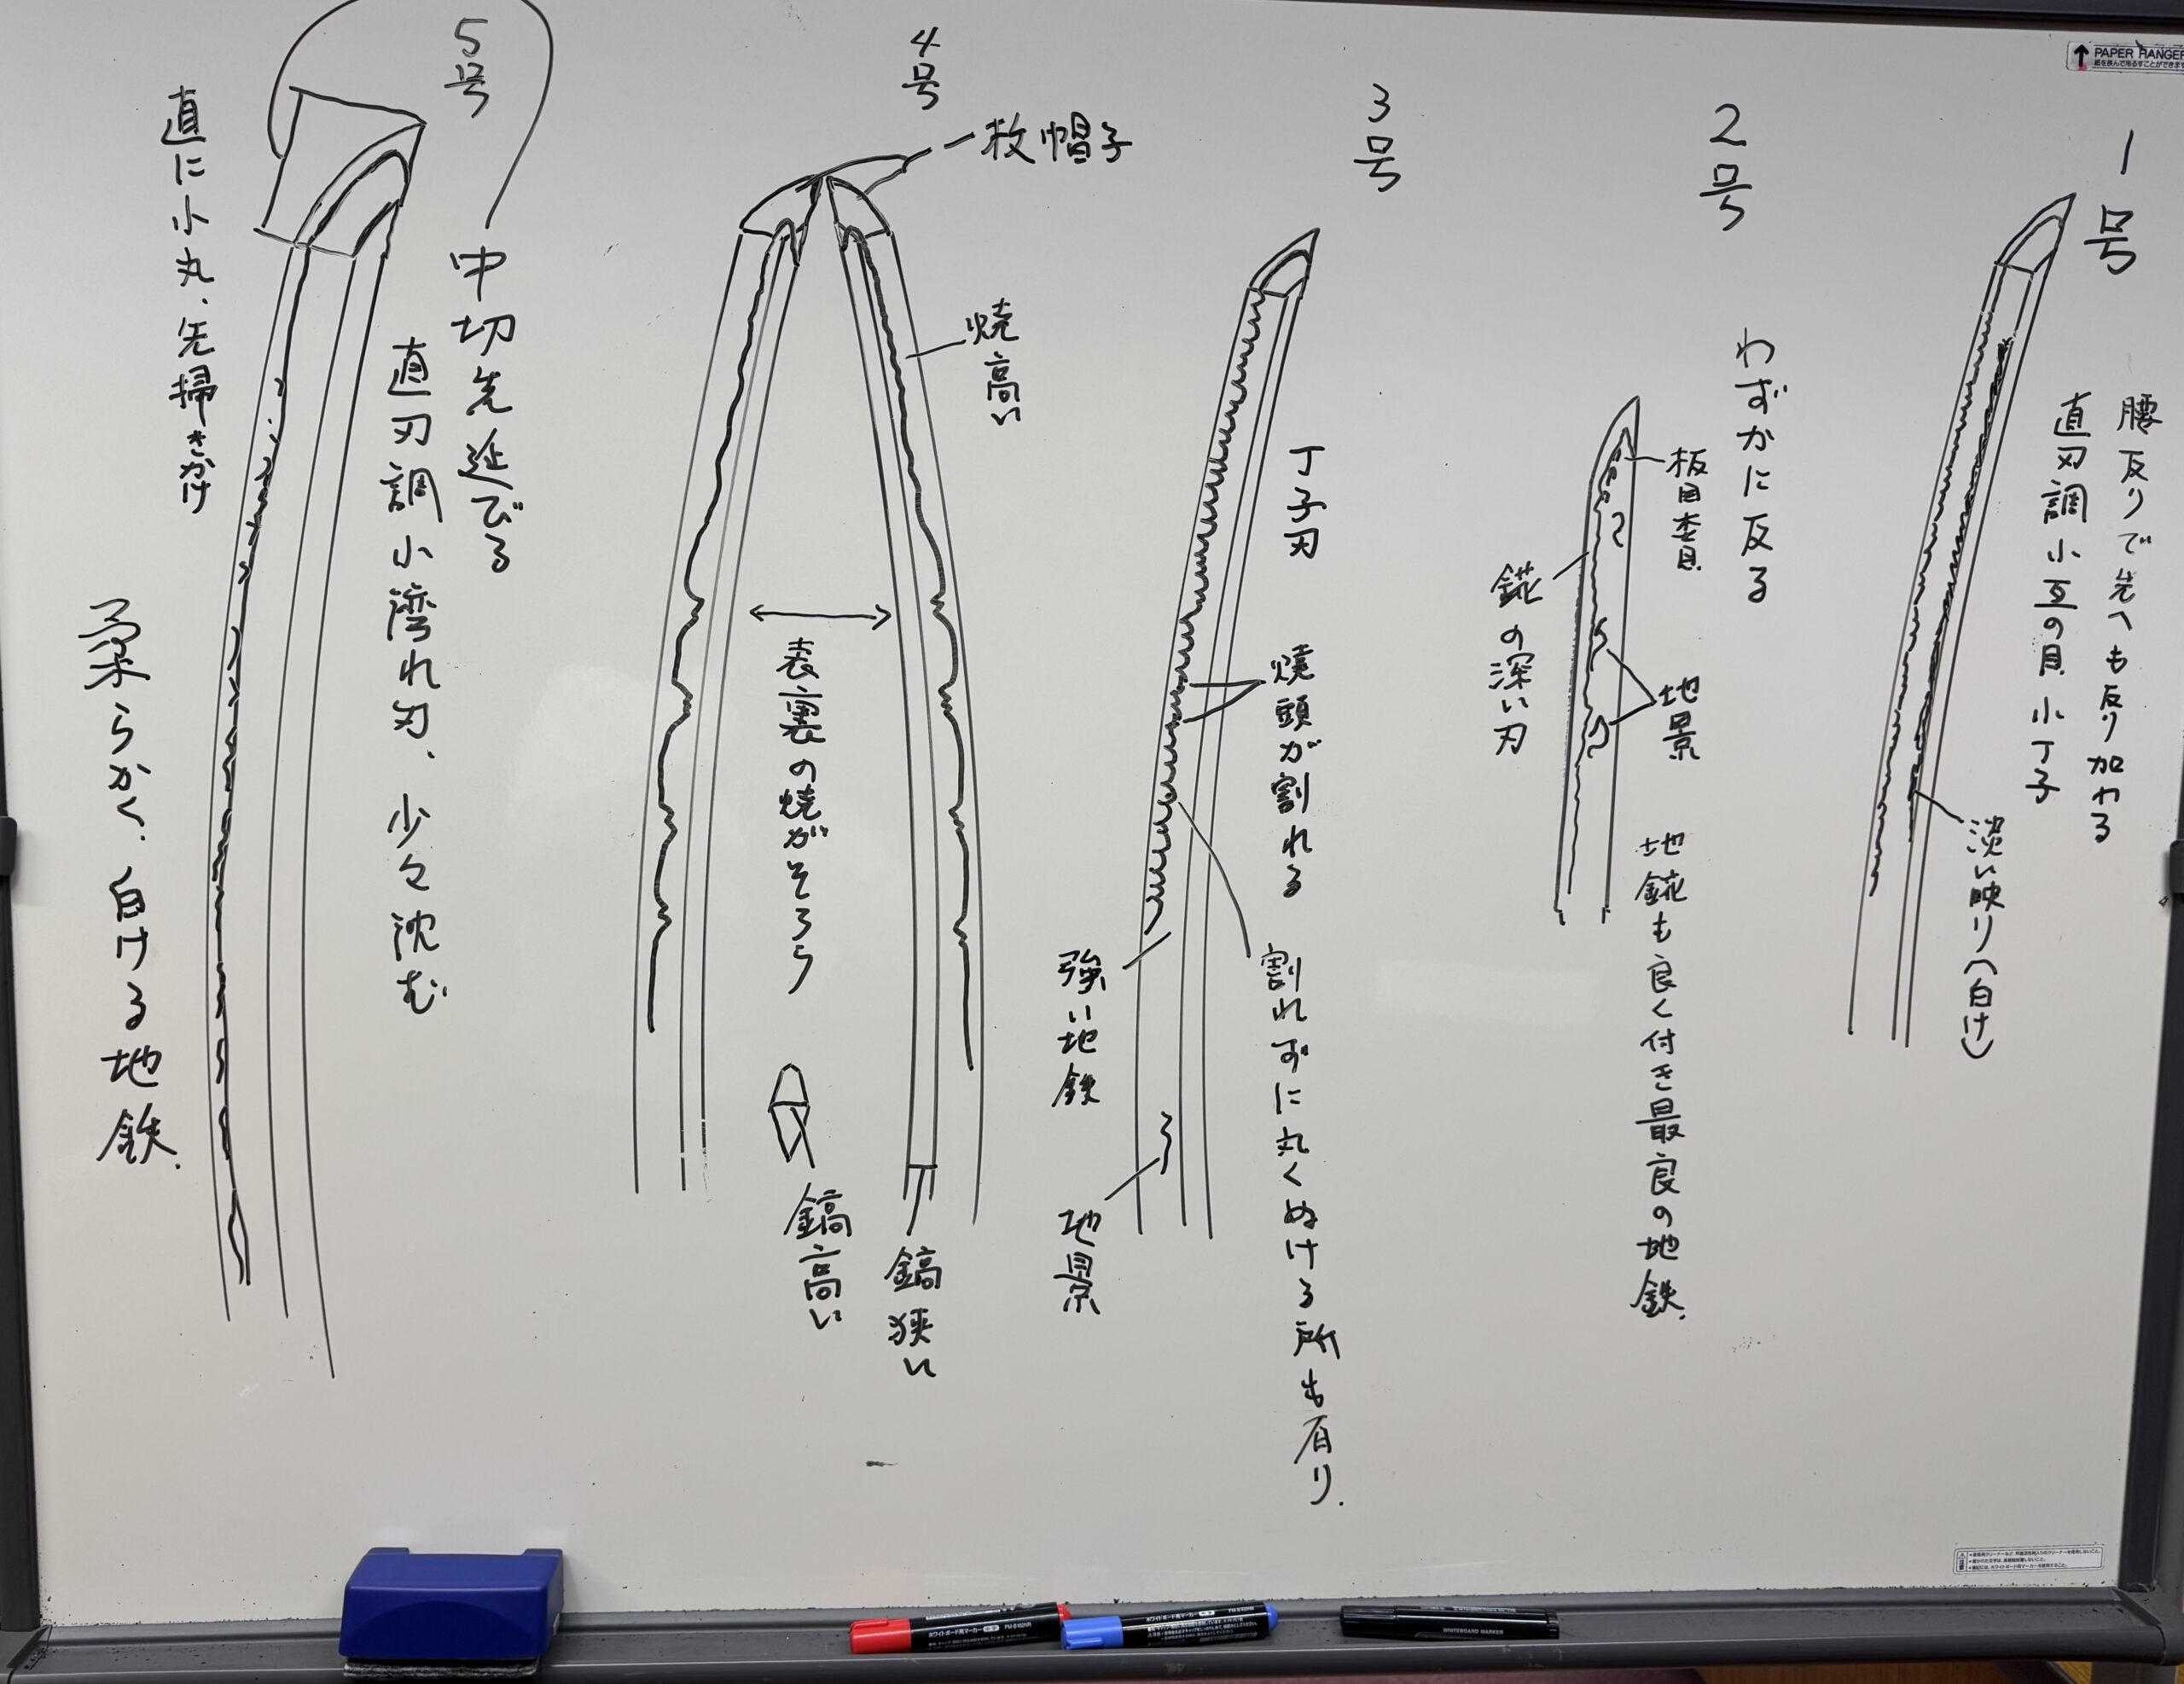 1号
腰反りで先へも反り加わる
直刃調小互の目小丁子
淡い映り(白け)
2号
わずかに反る
板目杢目
地景
錵の深い刃
地錵も良く付き最良の地鉄.
3号
丁子刃
焼頭が割れる
割れずに丸くぬける所も有り.
強い地鉄
地景
4号
一枚帽子
焼高い
表裏の焼がそろう
鎬高い
鎬狭い
5号
中切先延びる
直刃調小湾れ刃、少々沈む
直に小丸、先掃きかけ
柔らかく、白ける地鉄.
PAPER HANGER
ホワイトボード用マーカー
ホワイトボード用マーカー
WHITEBOARD MARKER